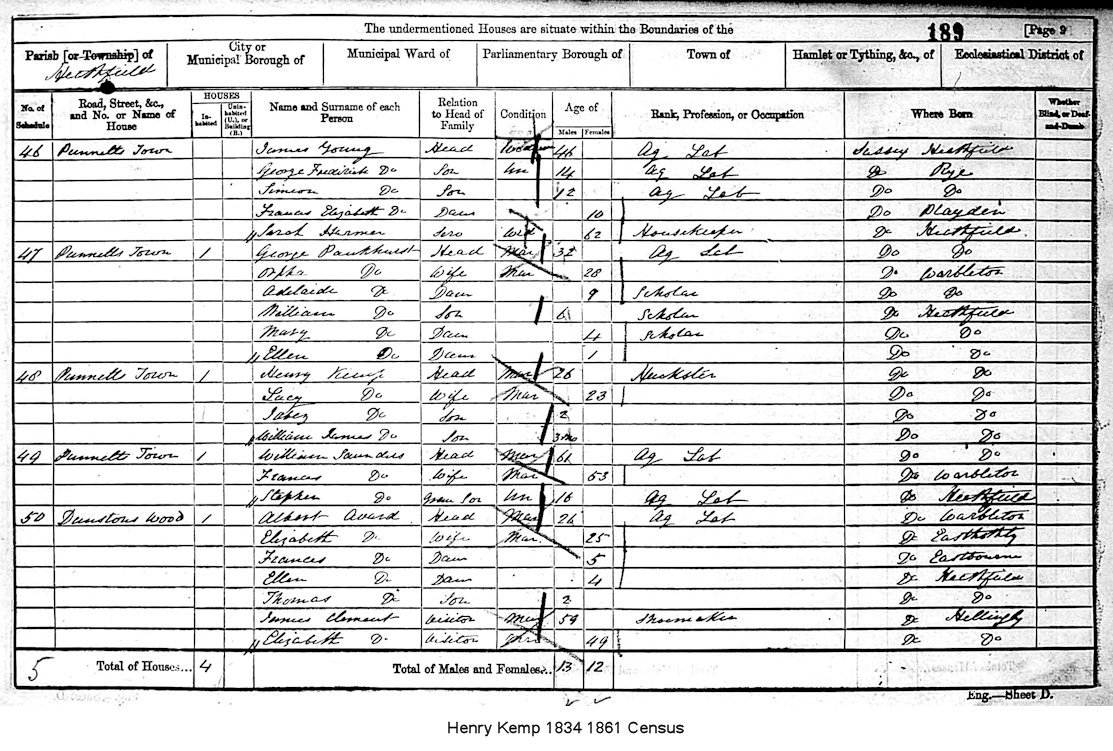 The undermentioned Houses are situate within the Boundaries of the 189 [Page 9
Parish [or Township] of City or Municipal Borough of Municipal Ward of Parliamentary Borough of Town of Hamlet or Tything, &c., of Ecclesiastical District of
Heathfield
No. of Schedule Road, Street, &c., and No. or Name of House HOUSES Inhabited Uninhabited (U.), or Building (B.) Name and Surname of each Person Relation to Head of Family Condition Age of Males Females Rank, Profession, or Occupation Where Born Whether Blind, or Deaf-and-Dumb
46 Punnetts Town James Young Head 46 Ag Lab Sussex Heathfield
George Fredrick Do Son Un 14 Ag Lab Do Rye
Simeon Do Son 12 Ag Lab Do Do
Frances Elizabeth Do Daur 10 Do Playden
Sarah Harmer Serv Wid 62 Housekeeper Do Heathfield
47 Punnetts Town 1 George Pankhurst Head Mar 32 Ag Lab Do Do
Orpha Do Wife Mar 28 Do Warbleton
Adelaide Do Daur 9 Scholar Do Do
William Do Son 6 Scholar Do Heathfield
Mary Do Daur 4 Scholar Do Do
Ellen Do Daur 1 Do Do
48 Punnetts Town 1 Henry Kemp Head Mar 26 Huckster Do Do
Lucy Do Wife Mar 23 Do Do
Jabez Do Son 2 Do Do
William James Do Son 3 mo Do Do
49 Punnetts Town 1 William Saunders Head Mar 61 Ag Lab Do Do
Frances Do Wife Mar 53 Do Warbleton
Stephen Do Gran Son Un 16 Ag Lab Do Heathfield
50 Dunstons Wood 1 Albert Avard Head Mar 26 Ag Lab Do Warbleton
Elizabeth Do Wife Mar 25 Do Easthothly
Frances Do Daur 5 Do Eastbourne
Ellen Do Daur 4 Do Heathfield
Thomas Do Son 2 Do Do
James Clement Visitor Mar 59 Shoemaker Do Hellingly
Elizabeth Do Visitor 49 Do Do
5 Total of Houses... 4 Total of Males and Females... 13 12
Eng.—Sheet D.
Henry Kemp 1834 1861 Census